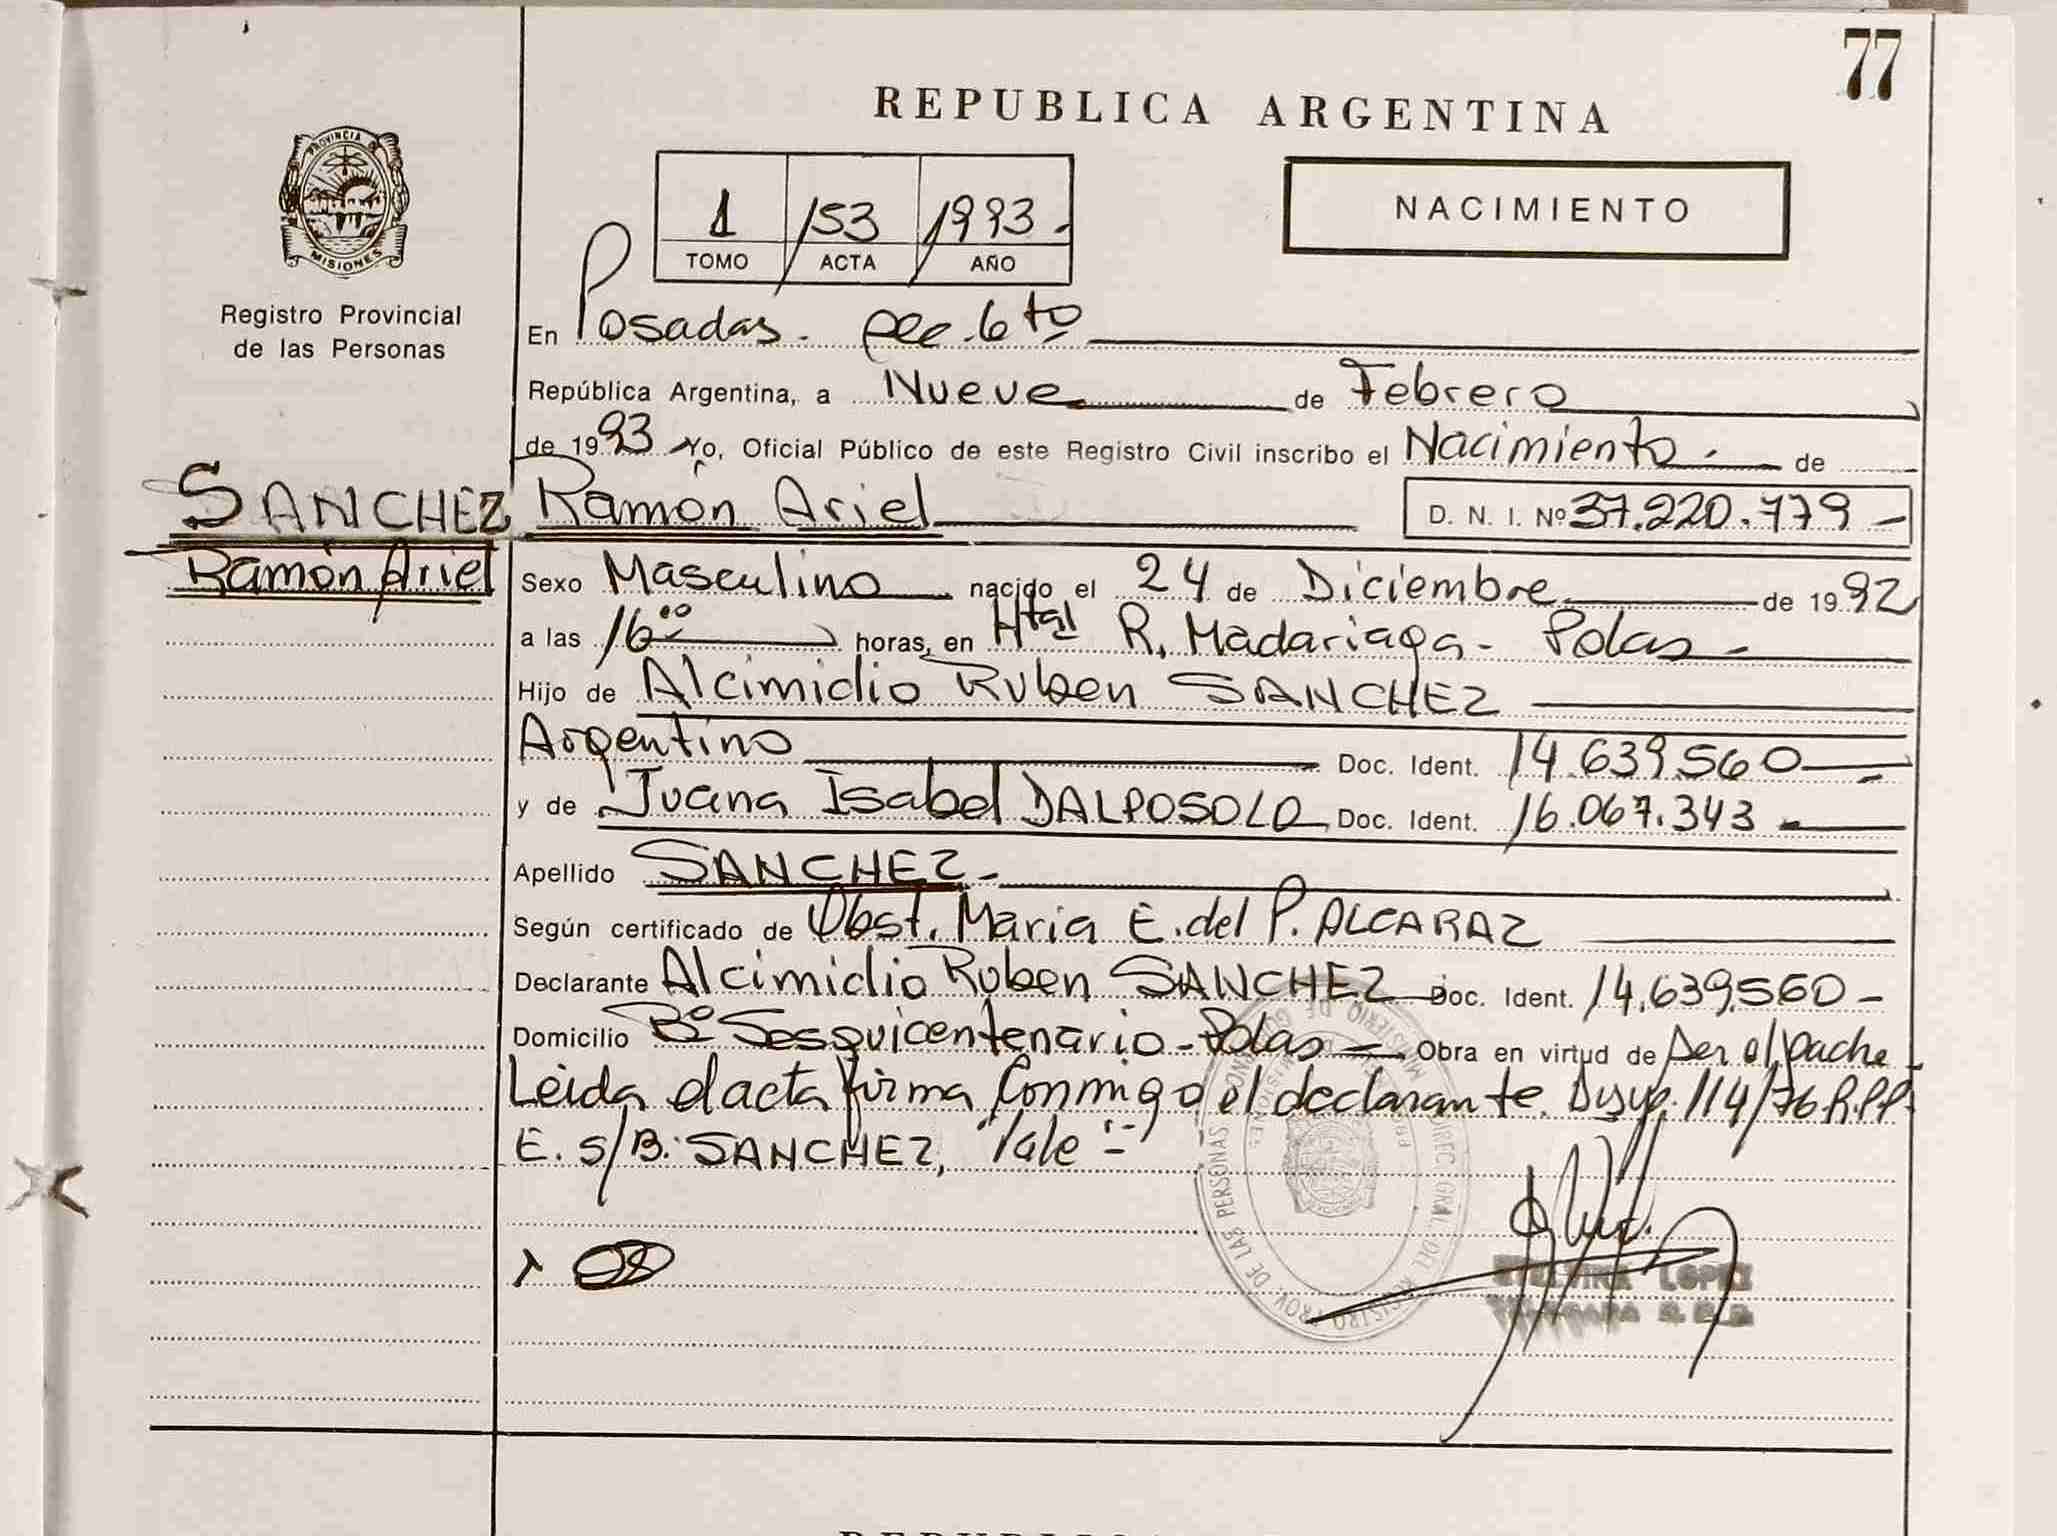 77
REPUBLICA ARGENTINA
PROVINCIA DE
MISIONES
Registro Provincial
de las Personas
1 153 1993.-
TOMO ACTA AÑO
NACIMIENTO
En Posadas. 6to
República Argentina, a Nueve de Febrero
de 1993 Yo, Oficial Público de este Registro Civil inscribo el Nacimiento.- de
SANCHEZ Ramón Ariel D. N. I. Nº 37.220.779-
Ramón Ariel
Sexo Masculino nacido el 24 de Diciembre de 1992
a las 16 00 horas, en Htal R. Madariaga- Pdas-
Hijo de Alcimidio Ruben SANCHEZ
Argentino Doc. Ident. 14.639.560
y de Juana Isabel DALPOSOLO Doc. Ident. 16.067.343
Apellido SANCHEZ-
Según certificado de Obst. Maria E. del P. ALCARAZ
Declarante Alcimidio Ruben SANCHEZ Doc. Ident. 14.639.560-
Domicilio Bº Sesquicentenario-Pdas- Obra en virtud de ser el padre
Leida el acta firma Conmigo el declarante. Disp. 114/76 R.P.P.
E. S/B: SANCHEZ, Vale
LOPEZ